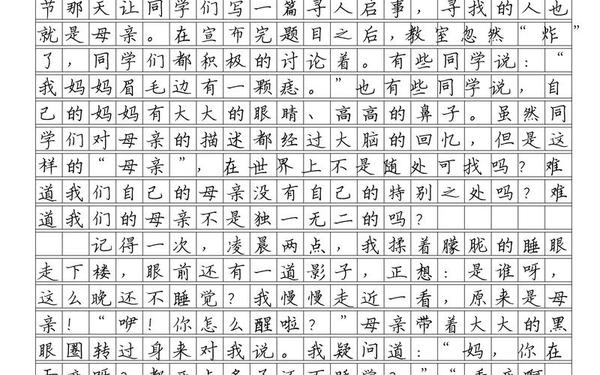 节那天让同学们写一篇寻人启事，寻找的人也
就是母亲。在宣布完题目之后，教室忽然“炸”
了，同学们都积极的讨论着。有些同学说：“
我妈妈眉毛边有一颗痣。”也有些同学说，自
己的妈妈有大大的眼睛、高高的鼻子。虽然同
学们对母亲的描述都经过大脑的回忆，但是这
样的“母亲”，在世界上不是随处可找吗？难
道我们自己的母亲没有自己的特别之处吗？难
道我们的母亲不是独一无二的吗？
记得一次，凌晨两点，我揉着朦胧的睡眼
走下楼，眼前还有一道影子，正想：是谁呀，
这么晚还不睡觉？我慢慢走近一看，原来是母
亲！“咿！你怎么醒啦？”母亲带着大大的黑
眼圈转过身来对我说。我疑问道：“妈，你在